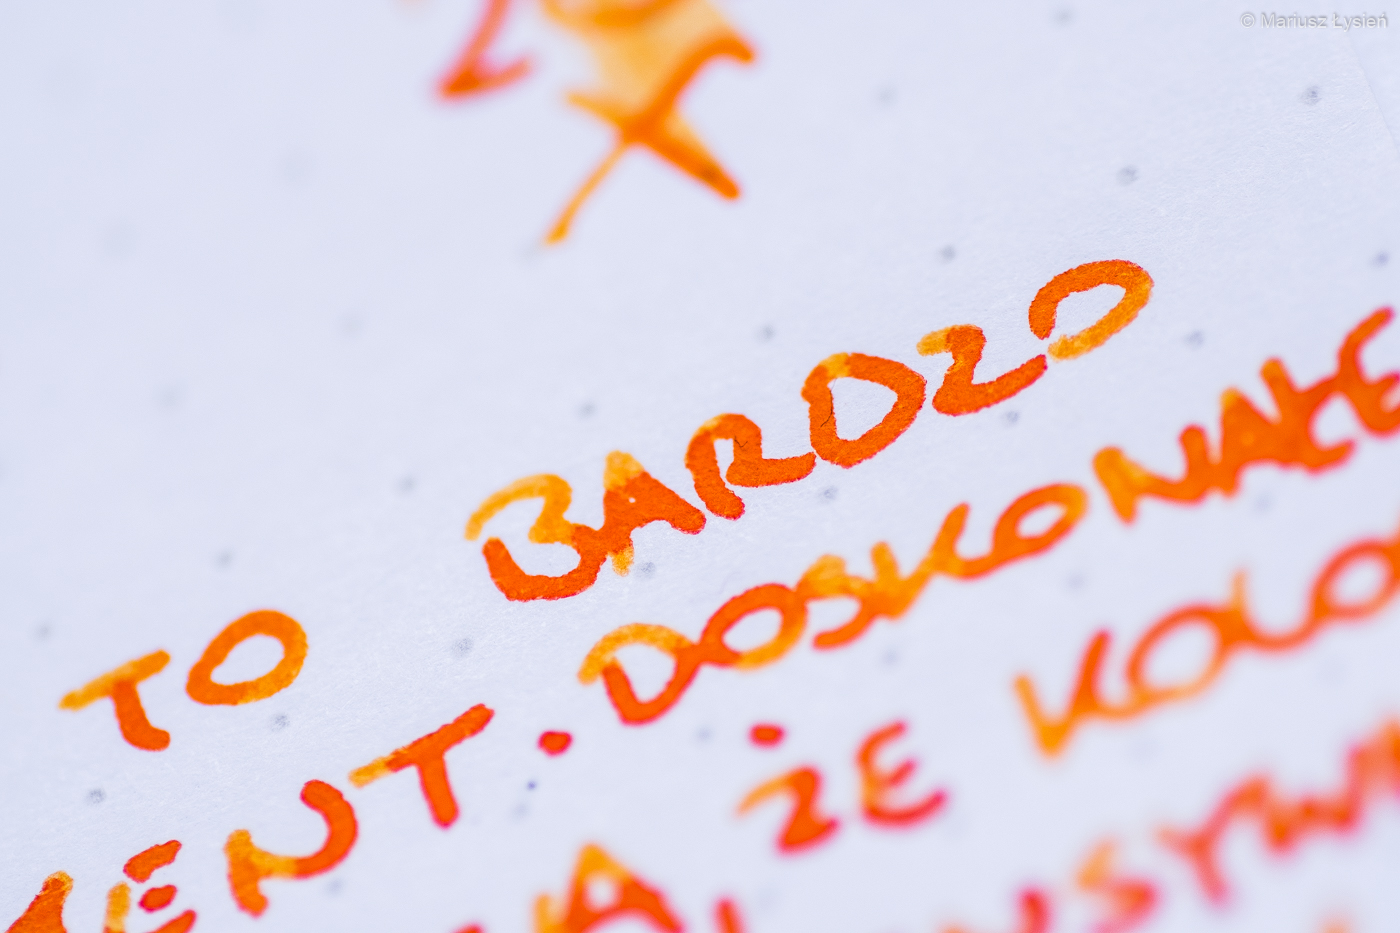 © Mariusz Łysień
TO BARDZO
ENT. DOSKONALE
ŻE KOLO